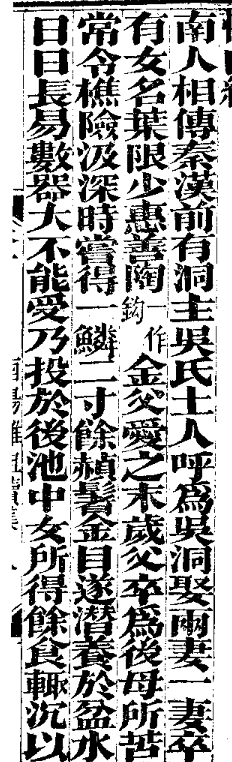 南人相傳秦漢前有洞主吳氏土人呼爲吳洞娶兩妻一妻卒
有女名葉限少惠善陶一作鈎金父愛之末歲父卒爲後母所苦
常令樵險汲深時嘗得一鱗二寸餘赬鬐金目遂潛養於盆水
日日長易數器大不能受乃投於後池中女所得餘食輙沉以